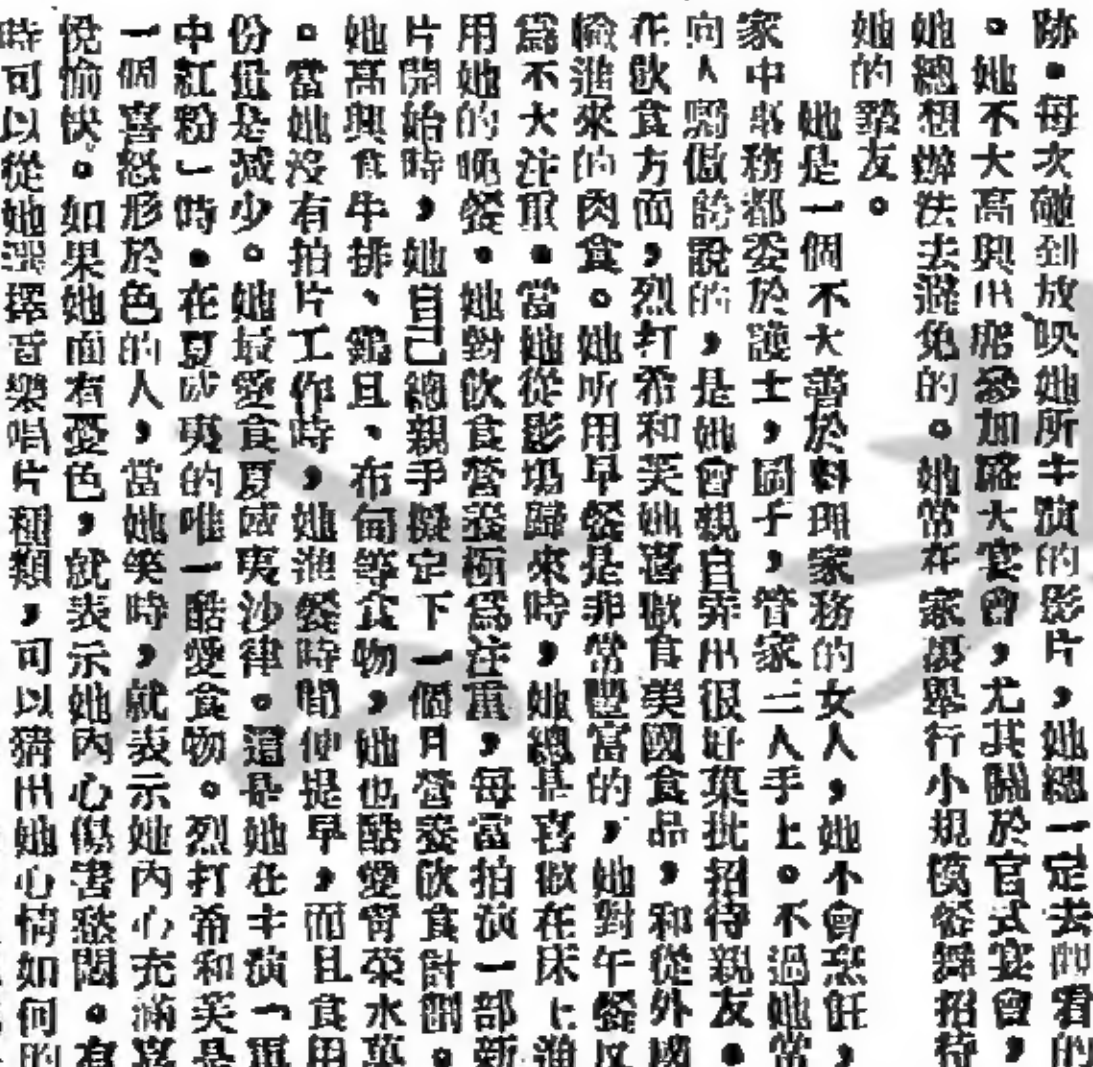 跡。每次碰到放映她所主演的影片，她總一定去觀看的
。她不大高興出席參加盛大宴會，尤其關於官式宴會，
她總想辦法去避免的。她常在家裏舉行小規模餐舞招待
她的摯友。
她是一個不大善於料理家務的女人，她不會烹飪，
家中事務都委於護士，園子，管家二人手上。不過她常
向人驕傲的說的，是她會親自弄出很好菜批招待親友。
在飲食方面，烈打希和芙她喜歡食美國食品，和從外國
輸進來的肉食。她所用早餐是非常豐富的，她對午餐反
為不大注重。當她從影場歸來時，她總是喜歡在床上進
用她的晚餐。她對飲食營養極為注重，每當拍放一部新
片開始時，她自己總親手擬定下一個月營養飲食計劃。
她高興食牛排、鷄旦、布甸等食物，她也酷愛食菜水菓
。當她沒有拍片工作時，她進餐時間便提早，而且食用
份量是減少。她最愛食夏威夷沙律。這是她在主演「軍
中紅粉」時。在夏威夷的唯一酷愛食物。烈打希和芙是
一個喜怒形於色的人，當她笑時，就表示她內心充滿喜
悅愉快。如果她面有憂色，就表示她內心傷害愁悶。有
時可以從她選擇音樂唱片種類，可以猜出她心情如何的